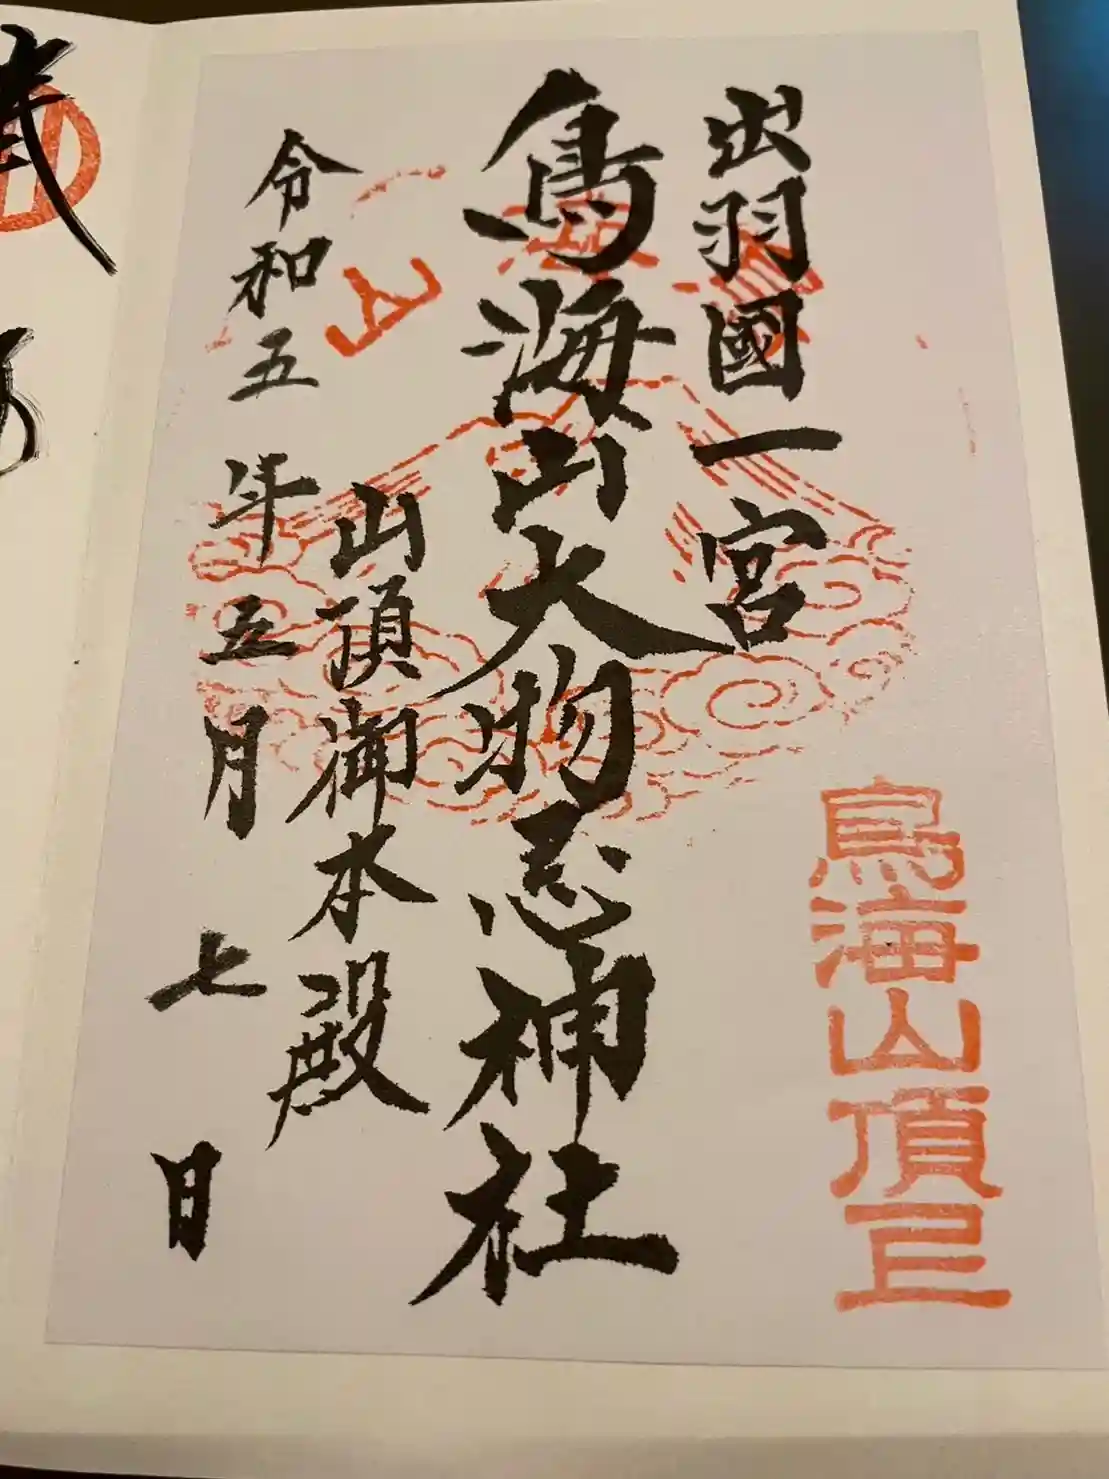 出羽國一宮
鳥海山大物忌神社
山頂御本殿
令和五年五月七日
鳥海山頂上